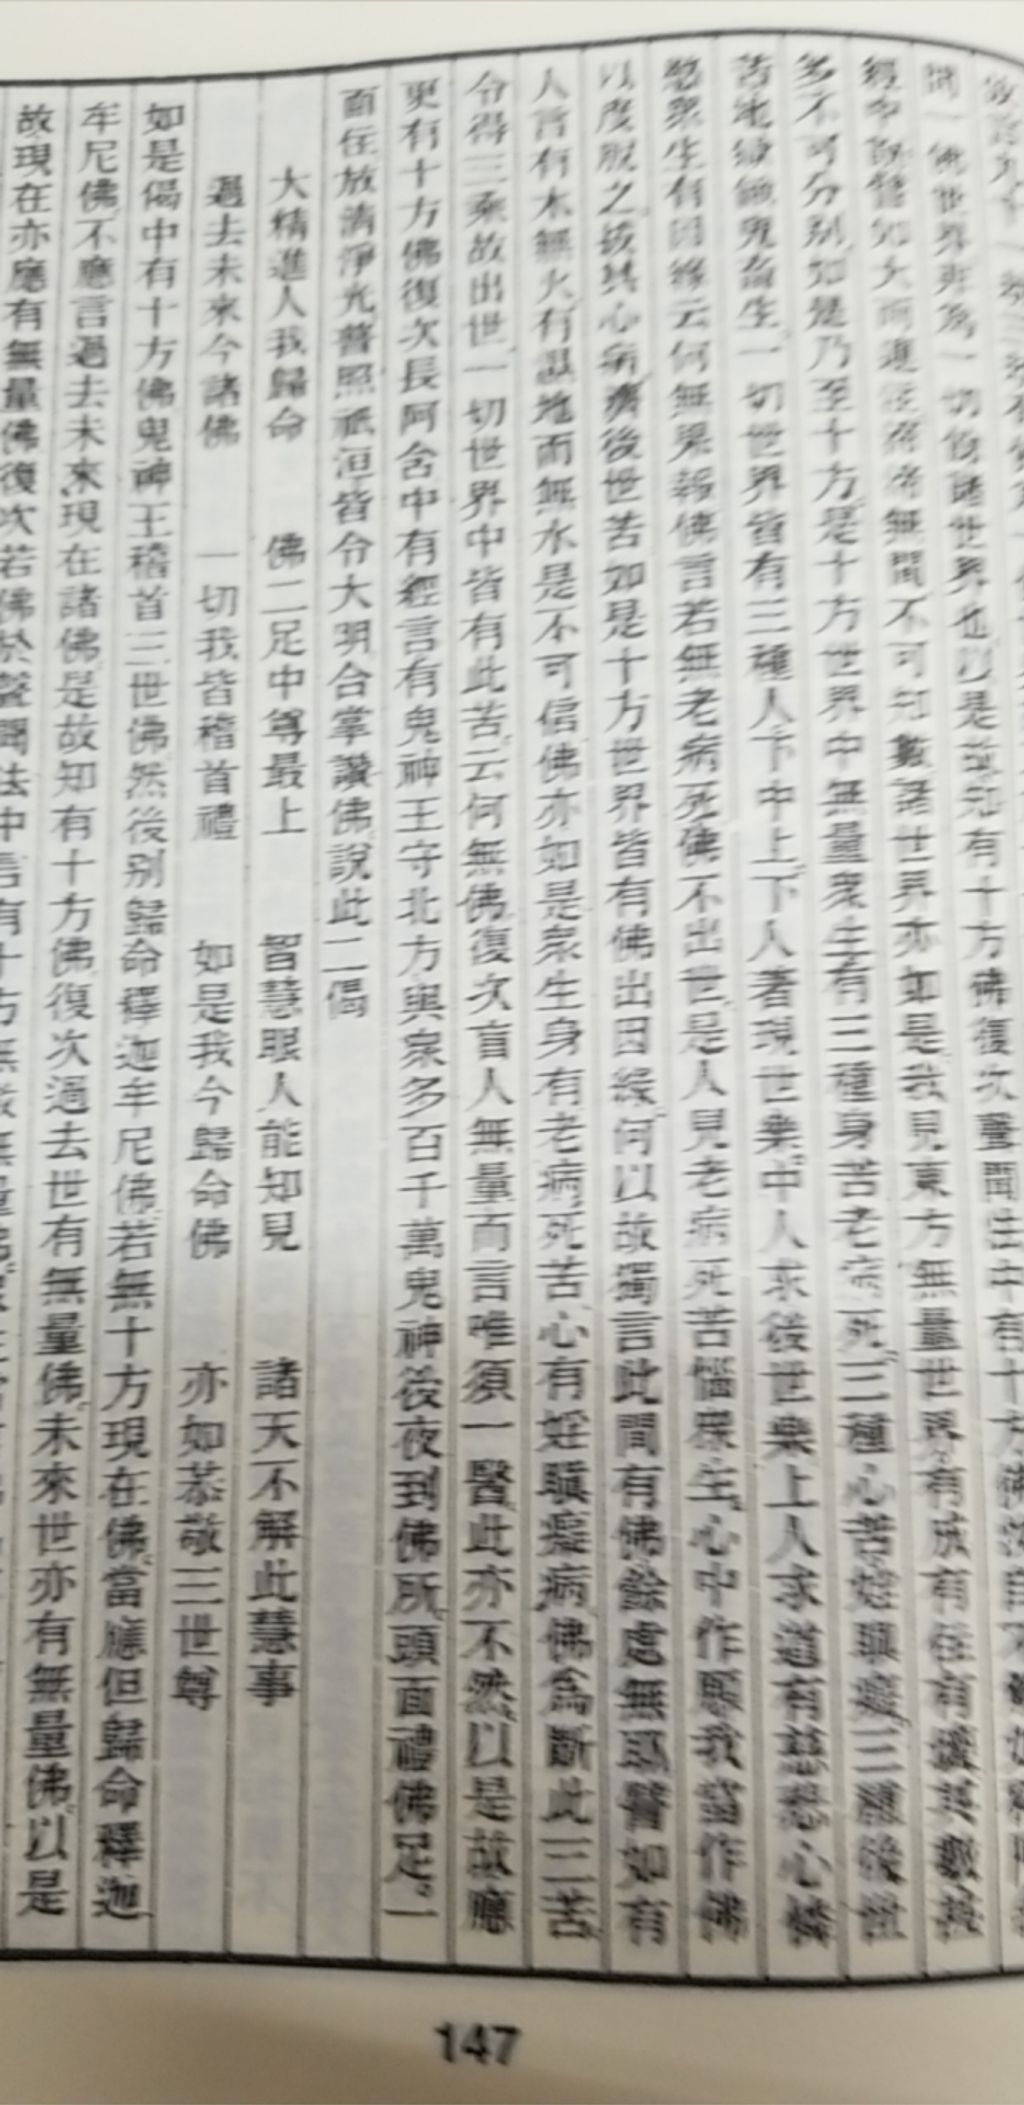 問一佛世界非為一切餘諸世界也以是故知有十方佛復次聲聞
經中說譬如大雨連注滴滴無間不可知數諸世界亦如是我見東方無量世界有成有住有壞其數甚
多不可分別如是乃至十方是十方世界中無量眾生有三種身苦老病死三種心苦婬瞋癡三種後世
苦地獄餓鬼畜生一切世界皆有三種人下中上下人著現世樂中人求後世樂上人求道有慈悲心憐
愍眾生有因緣云何無果報佛言若無老病死佛不出世是人見老病死苦惱眾生心中作願我當作佛
以度脫之拔其心病濟後世苦如是十方世界皆有佛出因緣何以故獨言此間有佛餘處無耶譬如有
人言有木無火有濕地而無水是不可信佛亦如是眾生身有老病死苦心有婬瞋癡病佛為斷此三苦
令得三乘故出世一切世界中皆有此苦云何無佛復次盲人無量而言唯須一醫此亦不然以是故應
更有十方佛復次長阿含中有經言有鬼神王守北方與眾多百千萬鬼神後夜到佛所頭面禮佛足一
面住放清淨光普照祇洹皆令大明合掌讚佛說此二偈
大精進人我歸命 佛二足中尊最上 智慧眼人能知見 諸天不解此慧事
過去未來今諸佛 一切我皆稽首禮 如是我今歸命佛 亦如恭敬三世尊
如是偈中有十方佛鬼神王稽首三世佛然後別歸命釋迦牟尼佛若無十方現在佛當應但歸命釋迦
牟尼佛不應言過去未來現在諸佛是故知有十方佛復次過去世有無量佛未來世亦有無量佛以是
故現在亦應有無量佛復次若佛於聲聞法中言有十方無
147